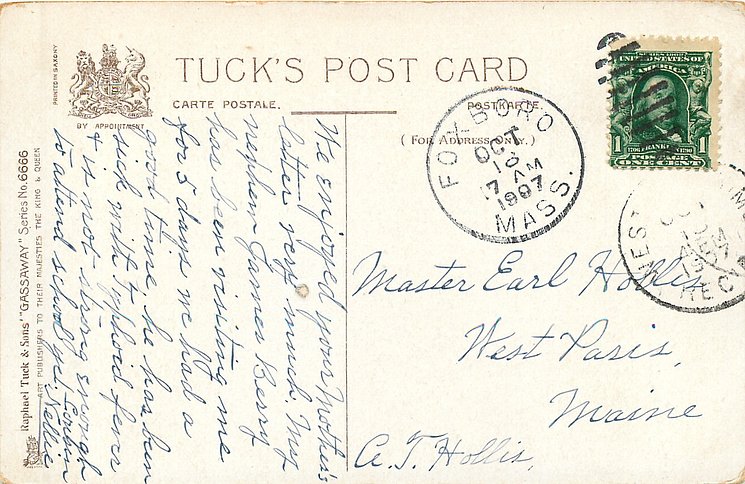 PRINTED IN SAXONY
BY APPOINTMENT
TUCK'S POST CARD
CARTE POSTALE.
POSTKARTE.
(FOR ADDRESS ONLY.)
Raphael Tuck & Sons' "GASSAWAY" Series No. 6666
ART PUBLISHERS TO THEIR MAJESTIES THE KING & QUEEN
We enjoyed your Mother's
letter very much. My
nephew James Berry
has been visiting me
for 5 days we had a
good time. he has been
sick with Typhoid fever
& is not strong enough
to attend school yet. Cousin
Nellie
FOXBORO
OCT
18
7 AM
1907
MASS.
SERIES 1902
UNITED STATES OF
FRANKLIN
1 1
POSTAGE
ONE CENT
WEST
M
AM
REC'D
Master Earl Hollis
West Paris,
Maine
A. T. Hollis,